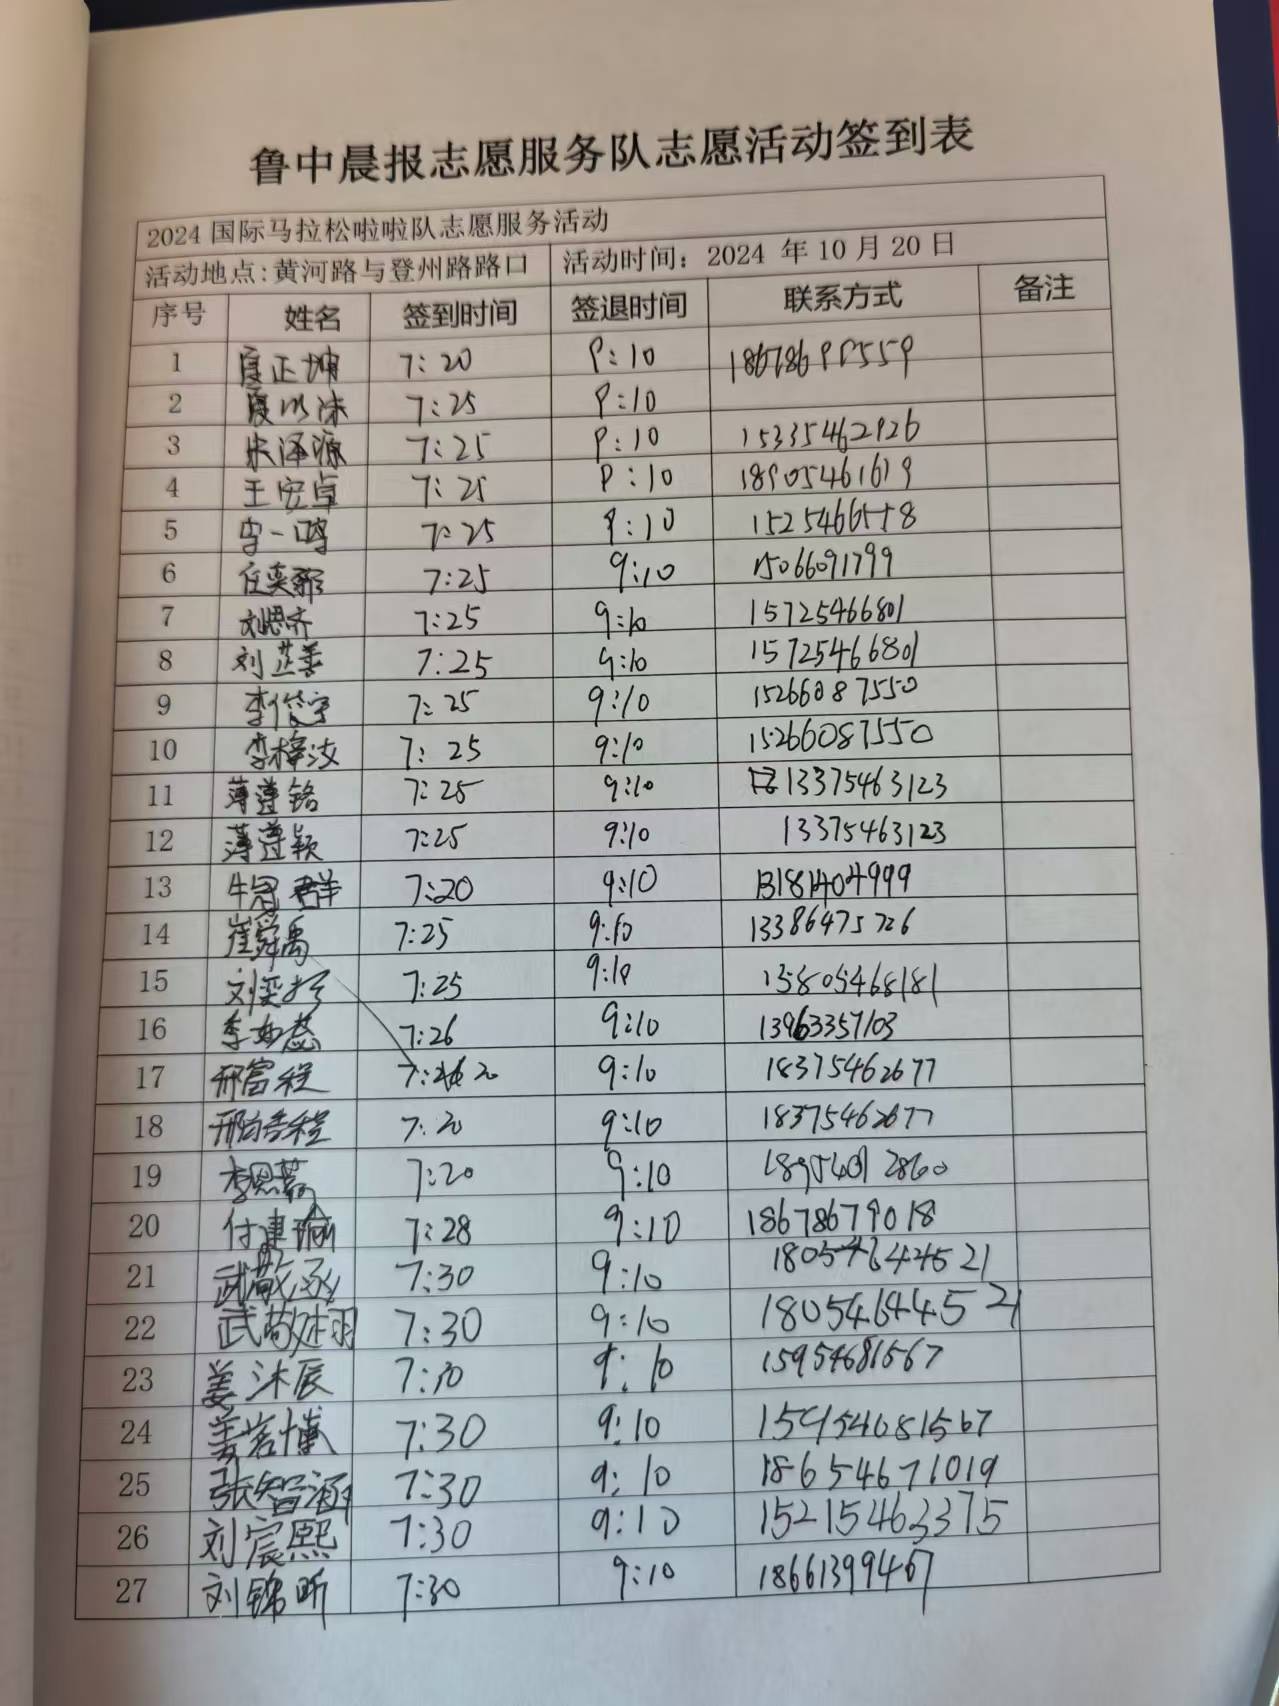 鲁中晨报志愿服务队志愿活动签到表
2024 国际马拉松啦啦队志愿服务活动
活动地点:黄河路与登州路路口 活动时间: 2024 年 10 月 20 日
序号 姓名 签到时间 签退时间 联系方式 备注
1 夏正坤 7:20 9:10
2 7:25 9:10
3 宋泽源 7:25 9:10 15335462926
4 王安卓 7:25 9:10 18905461619
5 李一鸣 7:25 9:10
6 7:25 9:10 15066091799
7 刘思齐 7:25 9:10 15725466801
8 刘芷菩 7:25 9:10 15725466801
9 李俊宇 7:25 9:10 15266087550
10 李梓汝 7:25 9:10 15266087550
11 薄莲铭 7:25 9:10 13375463123
12 薄莲颖 7:25 9:10 13375463123
13 牛冠群 7:20 9:10 13181404999
14 崔舜禹 7:25 9:10 13386475726
15 7:25 9:10 15805468181
16 李如蕊 7:26 9:10 13963357103
17 邢富程 9:10 18375462677
18 7:20 9:10 18375462677
19 7:20 9:10
20 付建瑜 7:28 9:10 18678679018
21 武敬丞 7:30 9:10 18054644521
22 武敬 7:30 9:10 18054644521
23 姜沐辰 7:30 9:10 15954681567
24 姜若慱 7:30 9:10 15954681567
25 张智涵 7:30 9:10 18654671019
26 刘宸熙 7:30 9:10 15215463375
27 刘锦昕 7:30 9:10 18661399467